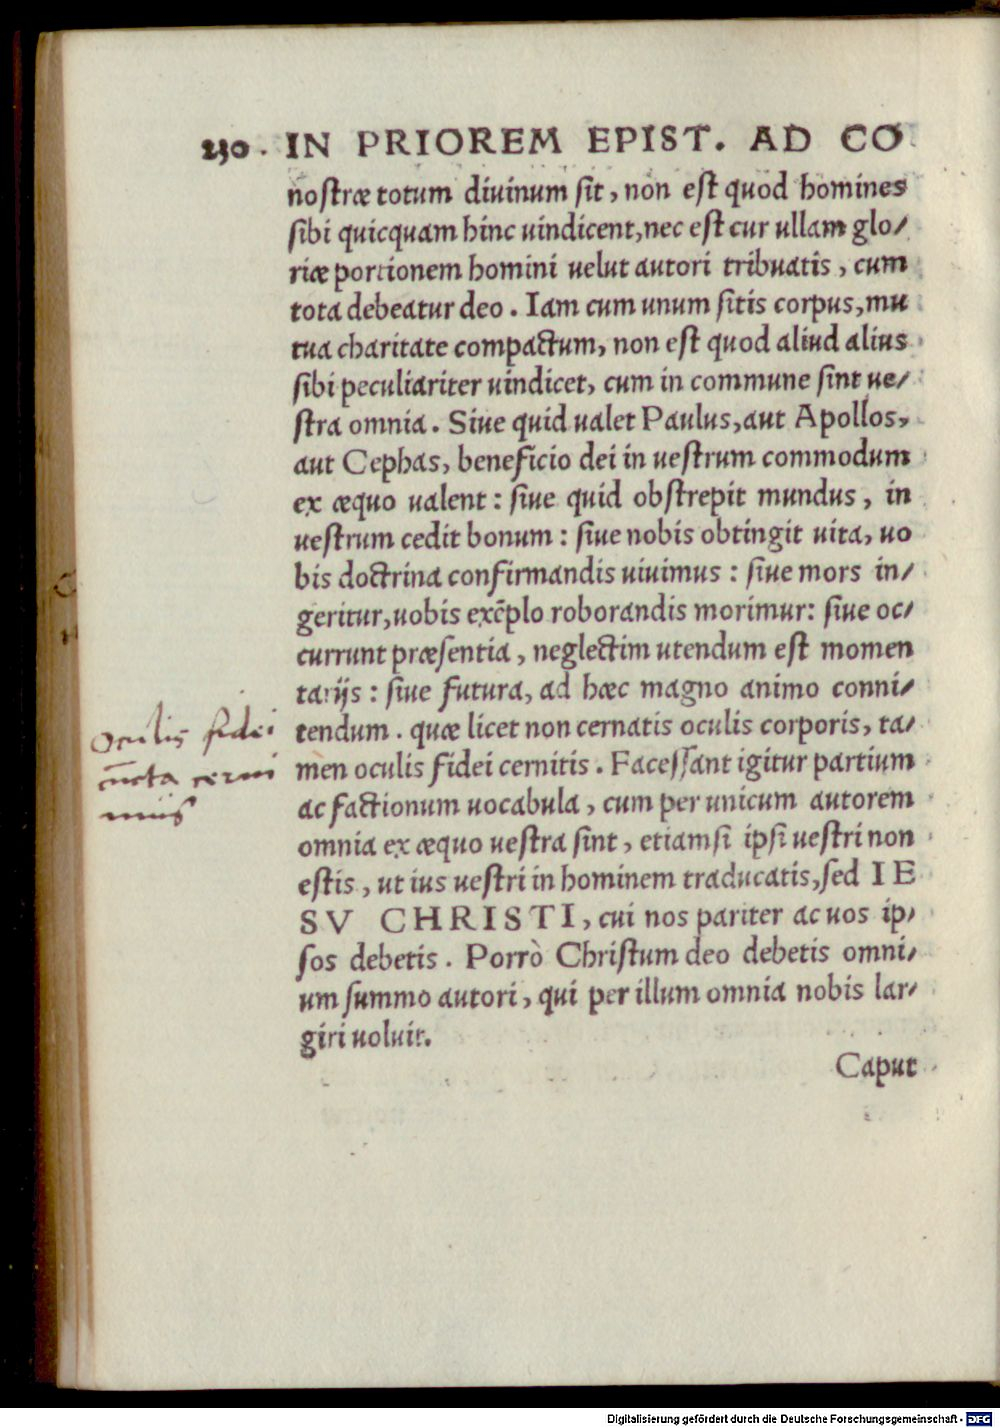 230. IN PRIOREM EPIST. AD CO
nostræ totum diuinum sit, non est quod homines
sibi quicquam hinc uindicent, nec est cur ullam glo/
riæ portionem homini uelut autori tribuatis, cum
tota debeatur deo. Iam cum unum sitis corpus, mu
tua charitate compactum, non est quod aliud alius
sibi peculiariter uindicet, cum in commune sint ue/
stra omnia. Siue quid ualet Paulus, aut Apollos,
aut Cephas, beneficio dei in uestrum commodum
ex æquo ualent: siue quid obstrepit mundus, in
uestrum cedit bonum: siue nobis obtingit uita, uo
bis doctrina confirmandis uiuimus: siue mors in/
geritur, uobis exẽplo roborandis morimur: siue oc/
currunt præsentia, neglectim utendum est momen
tarijs: siue futura, ad hæc magno animo conni/
tendum. quæ licet non cernatis oculis corporis, ta/
men oculis fidei cernitis. Facessant igitur partium
ac factionum uocabula, cum per unicum autorem
omnia ex æquo uestra sint, etiamsi ipsi uestri non
estis, ut ius uestri in hominem traducatis, sed IE
SV CHRISTI, cui nos pariter ac uos ip/
sos debetis. Porrò Christum deo debetis omni/
um summo autori, qui per illum omnia nobis lar/
giri uoluit.
Caput
Oculis fidei
cũcta cerni
mus
Digitalisierung gefördert durch die Deutsche Forschungsgemeinschaft - DFG